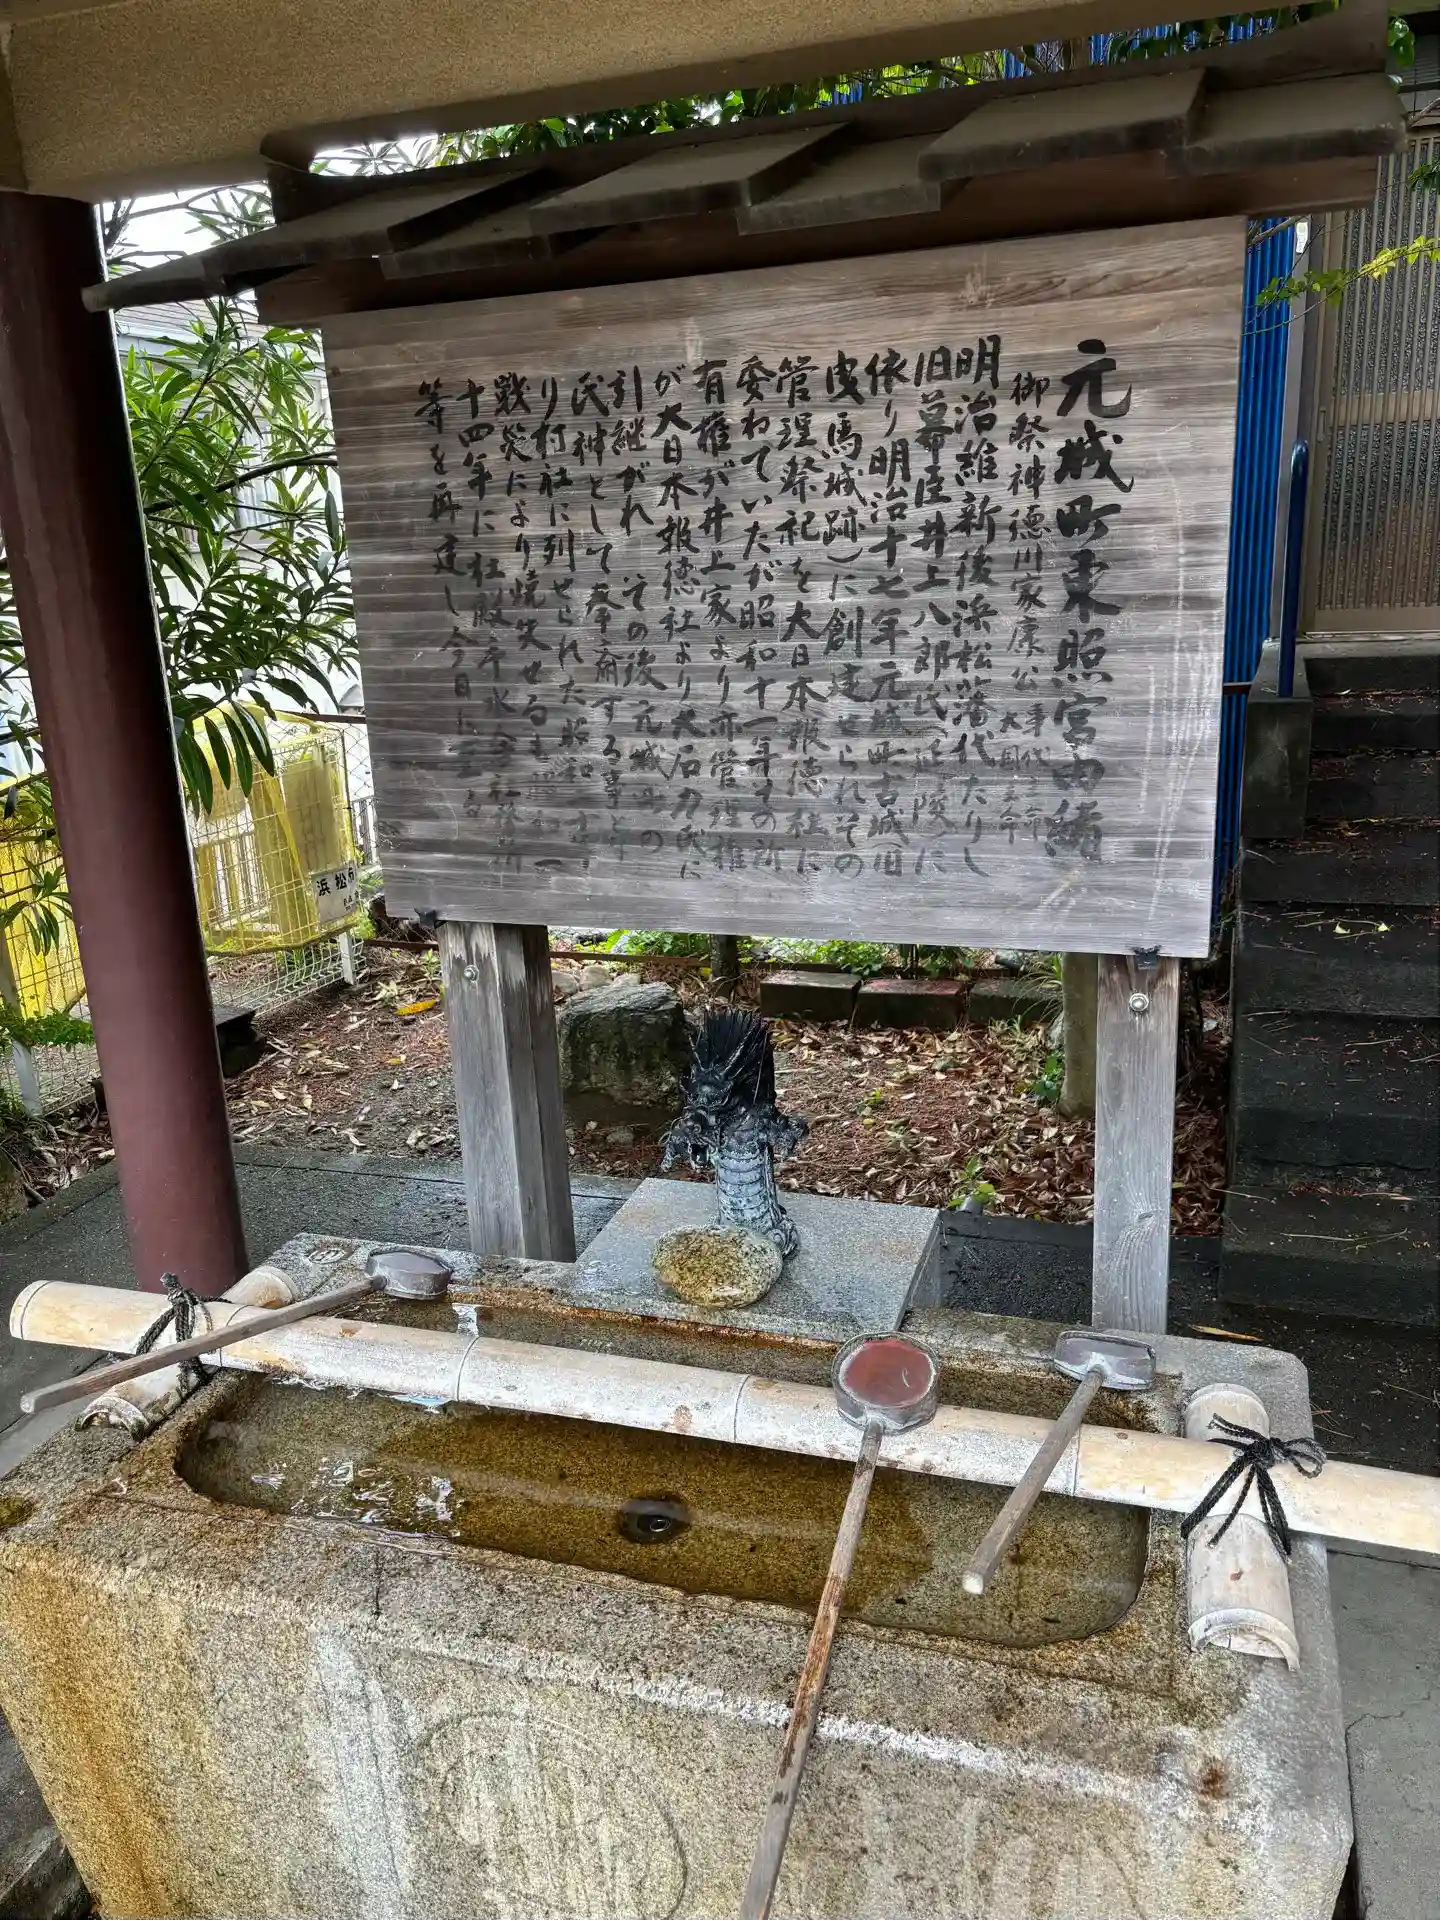 元城町東照宮由緒
御祭神徳川家康公 事代主命
大国主命
明治維新後浜松藩代たりし
旧幕臣井上八郎氏(延陵)に
依り明治十七年元城町古城(旧
曳馬城跡)に創建せられその
管理祭祀を大日本報徳社に
委ねていたが昭和十一年その所
有権が井上家より亦管理権
が大日本報徳社より大石力氏に
引継がれ その後 元城町の
氏神として奉斎する事と
り村社に列せられた昭和二十
戦災により焼失せるも昭和
十四年に社殿 水舎 社務所
等を再建し今日に至る
浜松市